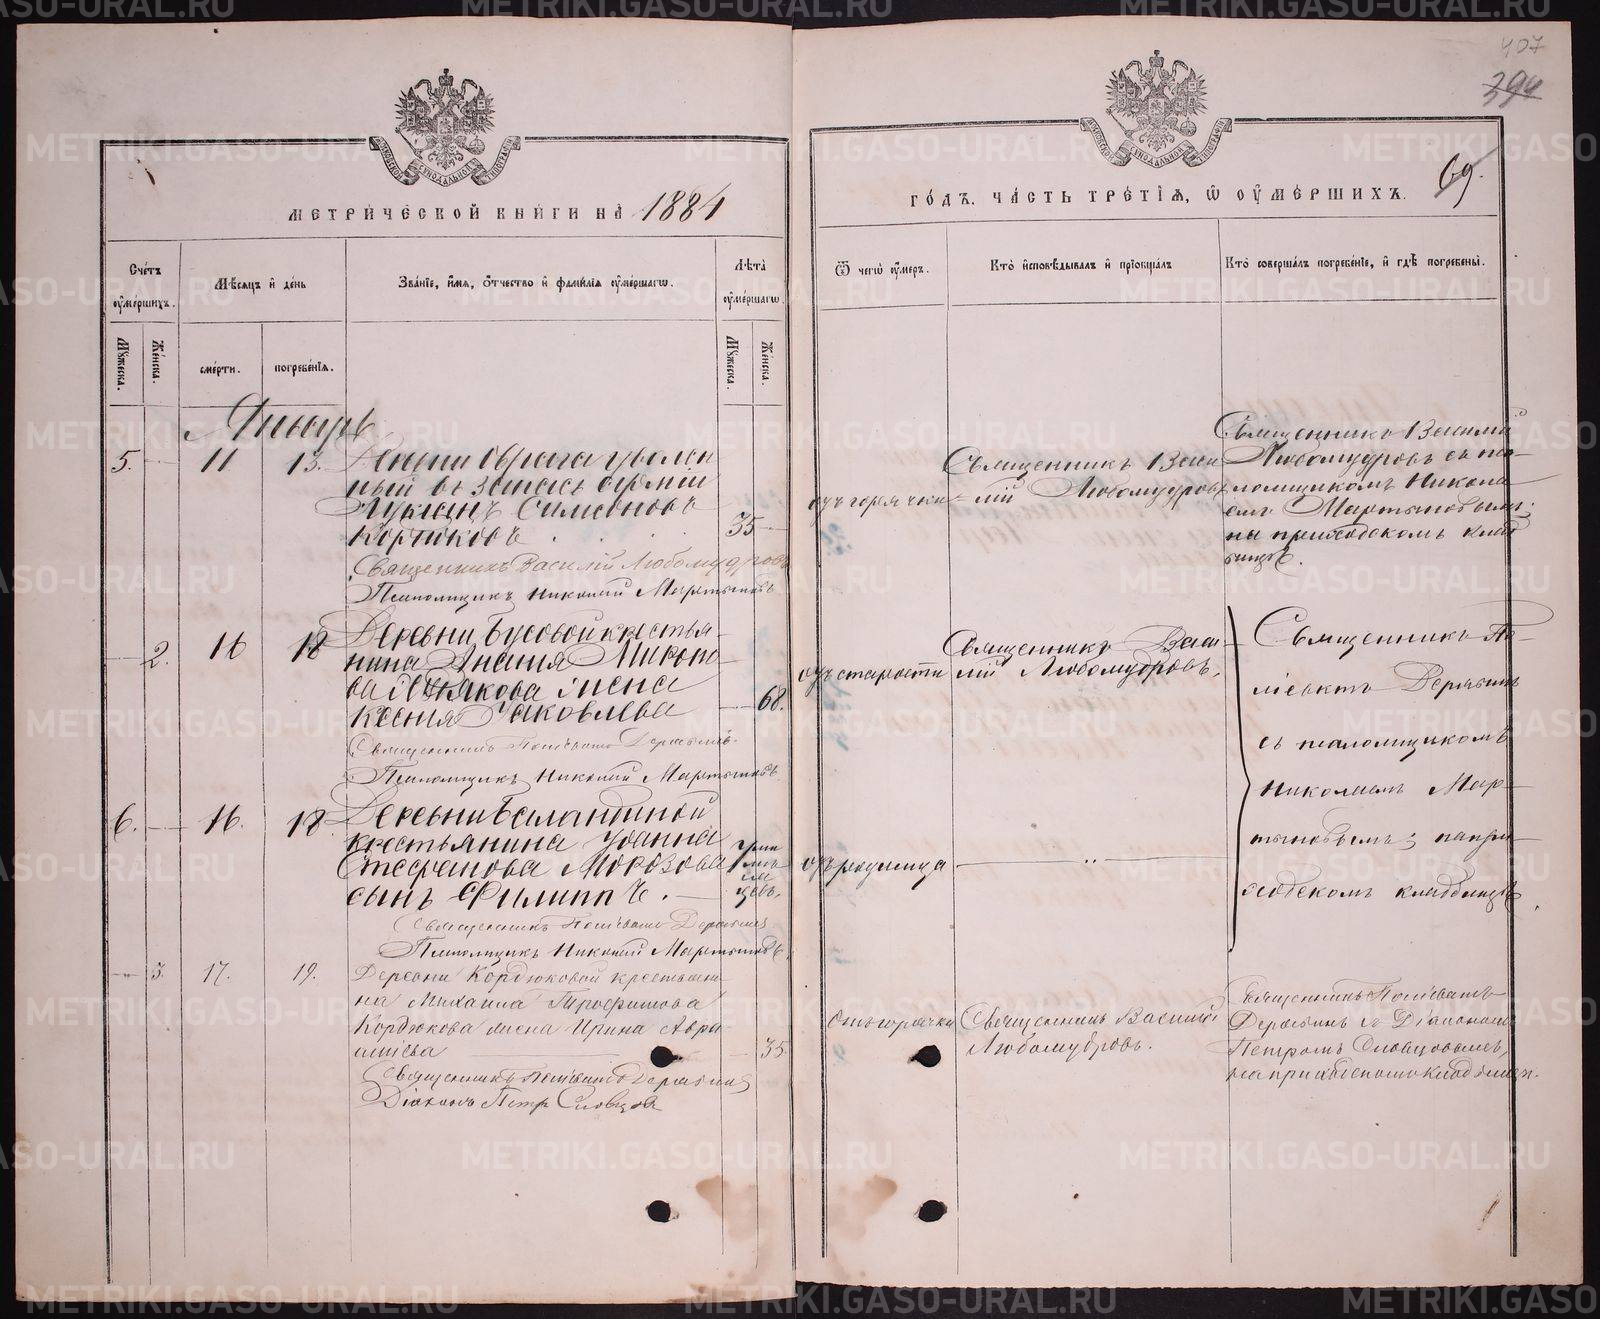 407
394
69.
МЕТРИ́ЧЕСКОЙ КНИ́ГИ НА̀ 1884
ГО́ДЪ. ЧА́СТЬ ТРЕ́ТІЯ, Ѡ ОУМЕ́РШИХЪ.
Сче́тъ оумершихъ.
Мѣсяцъ и день
Зва́ніе, и́мя, о́тчество и фами́лія оуме́ршагѡ.
Лѣта̀ оуме́ршагѡ.
Ѿ чегѡ̀ оу́меръ.
Кто̀ исповѣ́дывалъ и пріобща́лъ
Кто̀ соверша́лъ погребе́ніе, и гдѣ̀ погребены̀.
Мꙋ́жеска.
Же́нска.
сме́рти.
погребе́нія.
Мꙋ́жеска.
Же́нска.
Январь
5. 11 13.
уволен
ный въ запасъ арміи
Симеоновъ
Кортюковъ
35
Священникъ Василій Любомудровъ
Псаломщикъ Николай Мартыновъ
отъ горячки
Священникъ Васи
лій Любомудровъ
Священникъ Василій
Любомудровъ съ пса-
ломщикомъ Никола
емъ Мартыновымъ;
на приходскомъ клад
бищѣ.
2. 16 18
Деревни Бусовой крестья-
нина
жена
Ксенія Яковлева
68.
Священникъ Поліевктъ Дерябинъ.
Псаломщикъ Николай Мартыновъ
отъ старости
Священникъ Васи
лій Любомудровъ.
Священникъ По-
ліевктъ Дерябинъ
съ псаломщикомъ
Николаемъ Мар-
тыновымъ; на при
ходскомъ кладбищѣ.
6. 16. 18
Деревни
крестьянина Іоанна
Стефанова Морозова
сынъ Филиппъ.
Священникъ Поліевктъ Дерябинъ
Псаломщикъ Николай Мартыновъ
отъ родимца
3. 17. 19.
Деревни Кордюковой крестьяни-
на Михаила Трофимова
Кордюкова жена Ирина Авра
амiева
35
Священникъ Поліевктъ Дерябинъ
Діаконъ Петръ Словцовъ
Отъ горячки
Священникъ Василій
Любомудровъ.
Священникъ Поліевктъ
Дерябинъ съ Діакономъ
Петромъ Словцовымъ,
на приходскомъ кладбищѣ.
METRIKI.GASO-URAL.RU